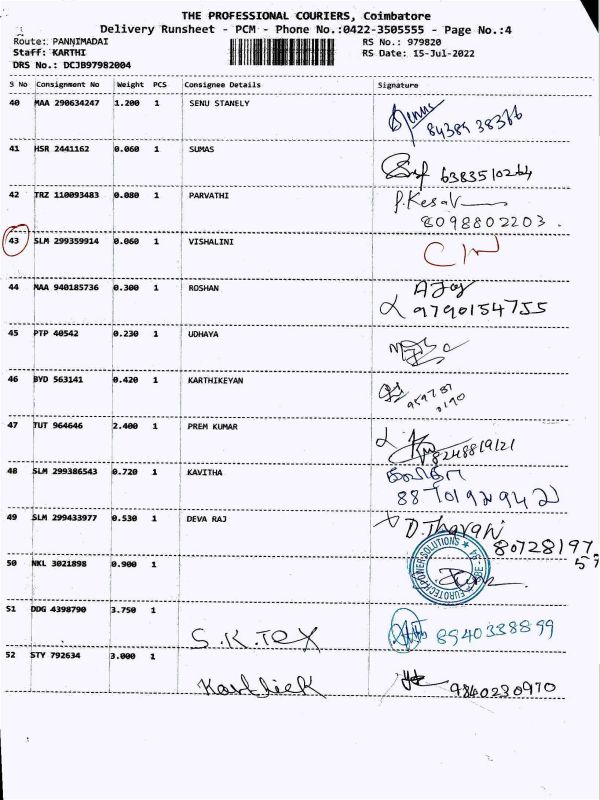 THE PROFESSIONAL COURIERS, Coimbatore
Delivery Runsheet - PCM - Phone No.:0422-3505555 - Page No.:4
Route: PANNIMADAI
RS No.: 979820
Staff: KARTHI
RS Date: 15-Jul-2022
DRS No.: DCJB97982004
S No Consignment No Weight PCS Consignee Details Signature
40 MAA 290634247 1.200 1 SENU STANELY
41 HSR 2441162 0.060 1 SUMAS
6383510264
42 TRZ 110093483 0.080 1 PARVATHI P. Kesav
8098802203.
43 SLM 299359914 0.060 1 VISHALINI
44 MAA 940185736 0.300 1 ROSHAN AJay
9790154755
45 PTP 40542 0.230 1 UDHAYA
46 BYD 563141 0.420 1 KARTHIKEYAN
47 TUT 964646 2.400 1 PREM KUMAR
8248819121
48 SLM 299386543 0.720 1 KAVITHA கவிதா
49 SLM 299433977 0.530 1 DEVA RAJ
80728197
57
50 NKL 3021898 0.900 1
EUROTECH POWER SOLUTIONS
51 DDG 4398790 3.750 1
S.K.TEX 8940338899
52 STY 792634 3.000 1
Karthick 9840230970